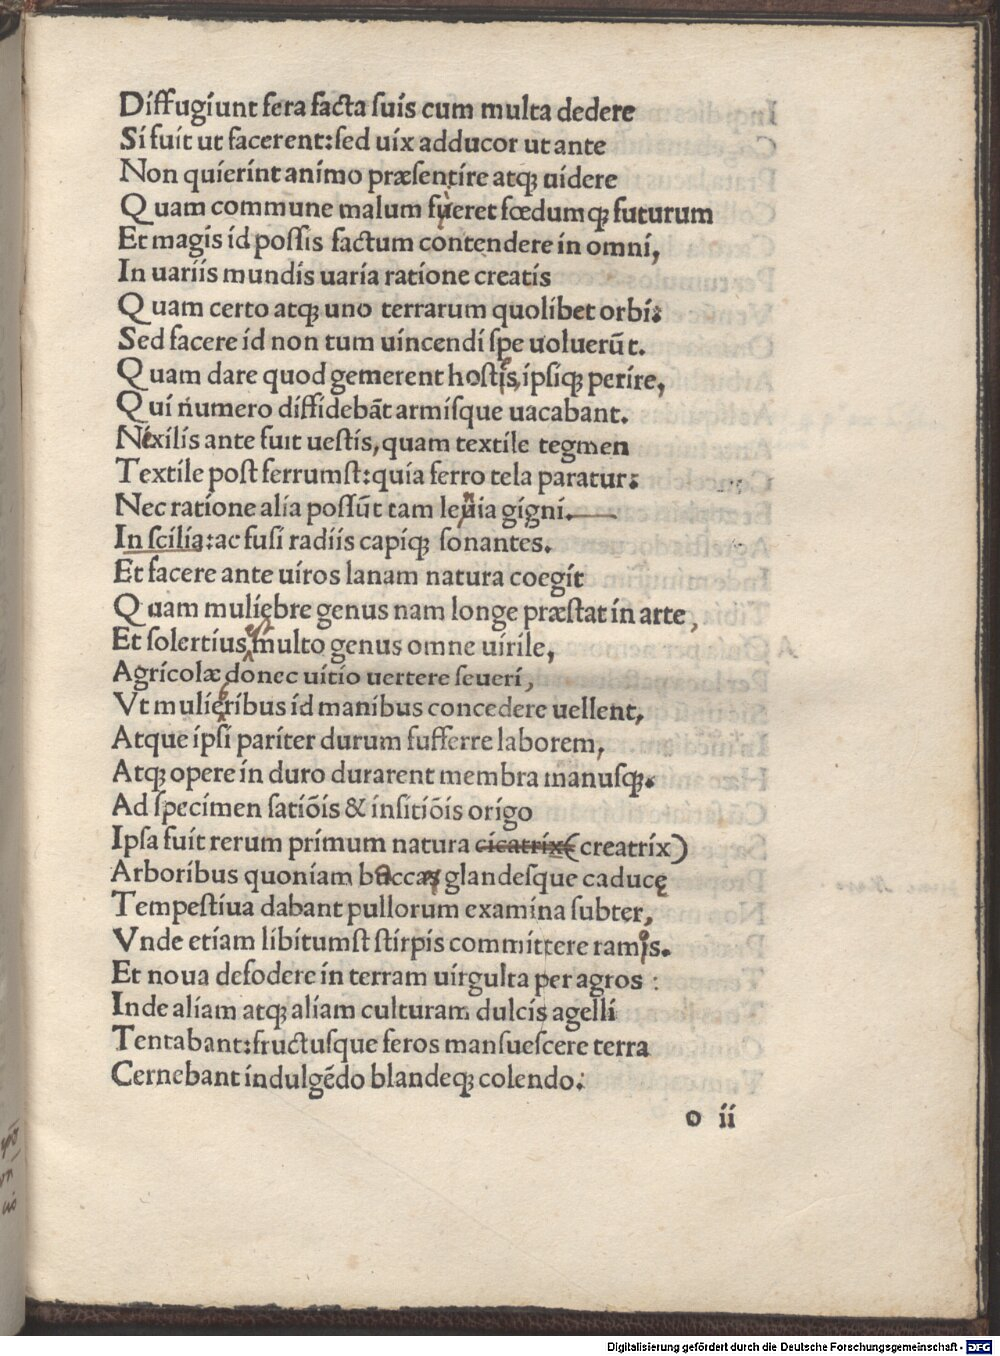 Diffugiunt fera facta suis cum multa dedere
Si fuit ut facerent: sed uix adducor ut ante
Non quierint animo præsentire atq; uidere
Quam commune malum fueret fœdumq; futurum
Et magis id possis factum contendere in omni,
In uariis mundis uaria ratione creatis
Quam certo atq; uno terrarum quolibet orbi:
Sed facere id non tum uincendi spe uoluerūt.
Quam dare quod gemerent hostis, ipsiq; perire,
Qui numero diffidebāt armisque uacabant.
Nexilis ante fuit uestis, quam textile tegmen
Textile post ferrumst: quia ferro tela paratur:
Nec ratione alia possūt tam leuia gigni.
In scilia: ac fusi radiis capiq; sonantes.
Et facere ante uiros lanam natura coegit
Quam muliebre genus nam longe præstat in arte,
Et solertius est multo genus omne uirile,
Agricolæ donec uitio uertere seueri,
Vt mulieribus id manibus concedere uellent,
Atque ipsi pariter durum sufferre laborem,
Atq; opere in duro durarent membra manusq;.
Ad specimen satiōis & insitiōis origo
Ipsa fuit rerum primum natura cicatrix (creatrix)
Arboribus quoniam baccae glandesque caducę
Tempestiua dabant pullorum examina subter,
Vnde etiam libitumst stirpis committere ramis.
Et noua defodere in terram uirgulta per agros:
Inde aliam atq; aliam culturam dulcis agelli
Tentabant: fructusque feros mansuescere terra
Cernebant indulgēdo blandeq; colendo.
o ii
Digitalisierung gefördert durch die Deutsche Forschungsgemeinschaft - DFG